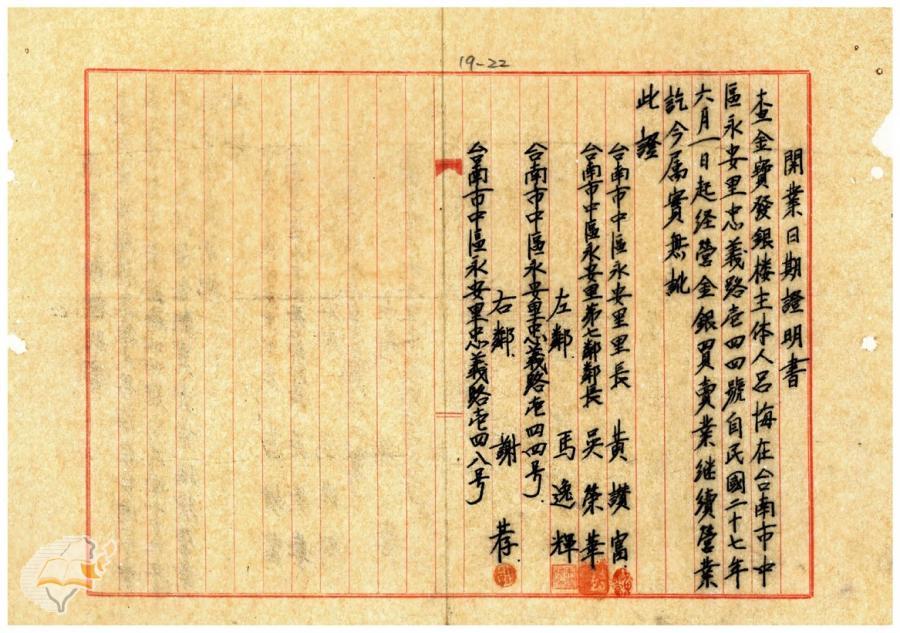 19-22
開業日期證明書
查金寶發銀楼主体人呂海在台南市中
區永安里忠義路壱四四號自民國二十七年
六月一日起経營金銀買賣業継續營業
訖今属實無訛
此證
台南市中區永安里里長 黃讚富
台南市中區永安里第七鄰鄰長 吳榮華
左鄰 馬逸輝
台南市中區永安里忠義路壱四四号
右鄰 謝
台南市中區永安里忠義路壱四八号